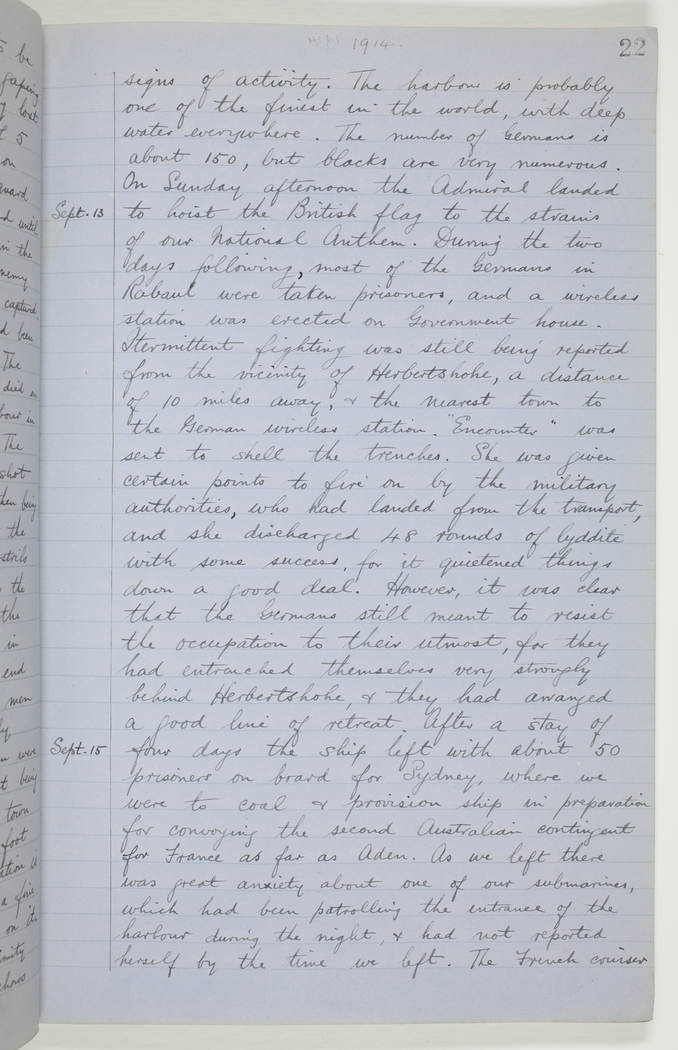 1914.
22
signs of activity. The harbour is probably
one of the finest in the world, with deep
water everywhere. The number of Germans is
about 150, but blacks are very numerous.
On Sunday afternoon the Admiral landed
Sept. 13 to hoist the British flag to the strains
of our National Anthem. During the two
days following, most of the Germans in
Rabaul were taken prisoners, and a wireless
station was erected on Government house.
Itermittent fighting was still being reported
from the vicinity of Herbertshohe, a distance
of 10 miles away, & the nearest town to
the German wireless station. "Encounter" was
sent to shell the trenches. She was given
certain points to fire on by the military
authorities, who had landed from the transport,
and she discharged 48 rounds of lyddite
with some success, for it quietened things
down a good deal. However, it was clear
that the Germans still meant to resist
the occupation to their utmost, for they
had entrenched themselves very strongly
behind Herbertshohe, & they had arranged
a good line of retreat. After a stay of
Sept. 15 four days the ship left with about 50
prisoners on board for Sydney, where we
were to coal & provision ship in preparation
for convoying the second Australian contingent
for France as far as Aden. As we left there
was great anxiety about one of our submarines,
which had been patrolling the entrance of the
harbour during the night, & had not reported
herself by the time we left. The French cruiser